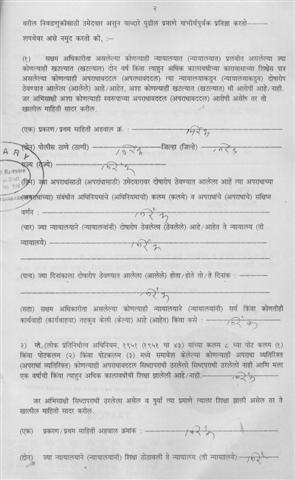 २
वरील निवडणुकीसाठी उमेदवार असून याद्वारे पुढील प्रमाणे गांभीर्यपूर्वक प्रतिज्ञा करतो
शपथेवर असे नमुद करतो की, :-
(१) सक्षम अधिकारिता असलेल्या कोणत्याही न्यायालयात (न्यायालयांत) प्रलंबीत असलेल्या ज्या
कोणत्याही खटल्यात (खटल्यांत) दोन वर्षे किंवा त्याहुन अधिक कालावधीच्या कारावासाच्या शिक्षेस पात्र
असलेल्या कोणत्याही अपराधाबद्दल (अपराधांबद्दल) त्या न्यायालयाकडून (न्यायालयाकडून) दोषारोप
ठेवण्यात आलेला (आलेले) आहे/आहेत, अशा कोणत्याही खटल्यात (खटल्यांत) मी आरोपी आहे/नाही.
जर अभिसाक्षी अशा कोणत्याही स्वरूपाच्या अपराधाबद्दल (अपराधांबद्दल) आरोपी असेल तर तो
खालील माहिती सादर करील.
(एक) प्रकरण/प्रथम माहिती अहवाल क्रं. : निरंक
(दोन) पोलीस ठाणे (ठाणी) निरंक जिल्हा (जिल्हे) निरंक
राज्य (राज्ये) निरंक
(तिन) ज्या अपराधांसाठी (अपराधांसाठी) उमेदवारावर दोषारोप ठेवण्यात आलेला आहे त्या अपराधाच्या
(अपराधांच्या) संबंधीत अधिनियमाचे (अधिनियमांची) कलम (कलमे) व अपराधाचे (अपराधांचे) संक्षिप्त
वर्णन : निरंक
(चार) ज्या न्यायालयाने (न्यायालयांनी) दोषारोप ठेवलेला (ठेवलेले) आहे/आहेत ते न्यायालय (ती
न्यायालये) निरंक
(पाच) ज्या दिनांकाला दोषारोप ठेवण्यात आलेला (आलेले) होता/होते तो/ते दिनांक :
निरंक
(सहा) सक्षम अधिकारीता असलेल्या कोणत्याही न्यायालयाने (न्यायालयांनी) सर्व किंवा कोणतीही
कार्यवाही (कार्यवाह्या) तहकूब केली (केल्या) आहे (आहेत) किंवा कसे : निरंक
२ मी,(लोक प्रतिनिधीत्व अधिनियम, १९५१ (१९५१ चा ४३) यांच्या कलम ८ च्या पोट कलम (१)
किंवा पोटकलम (२) किंवा पोटकलम (३) मध्ये समावेश केलेल्या कोणत्याही अपराधा व्यतिरिक्त
(अपराधां व्यतिरिक्त) कोणत्याही अपराधाबद्दल सिध्दापराधी ठरलेलो सिध्दापराधी ठरलेलो नाही आणि मला
एक वर्षाची किंवा त्याहुन अधिक कालावधीची शिक्षा झालेली आहे/नाही. निरंक
जर अभिसाक्षी सिध्दापराधी ठरलेला असेल व पुर्वी त्या प्रमाणे त्याला शिक्षा झाली असेल तर तो
खालील माहिती सादर करील.
(एक) प्रकरण/प्रथम माहिती अहवाल क्रमांक : निरंक
(दोन) ज्या न्यायालयाने (न्यायालयांनी) शिक्षा ठोठावली ते न्यायालय (ती न्यायालये) निरंक